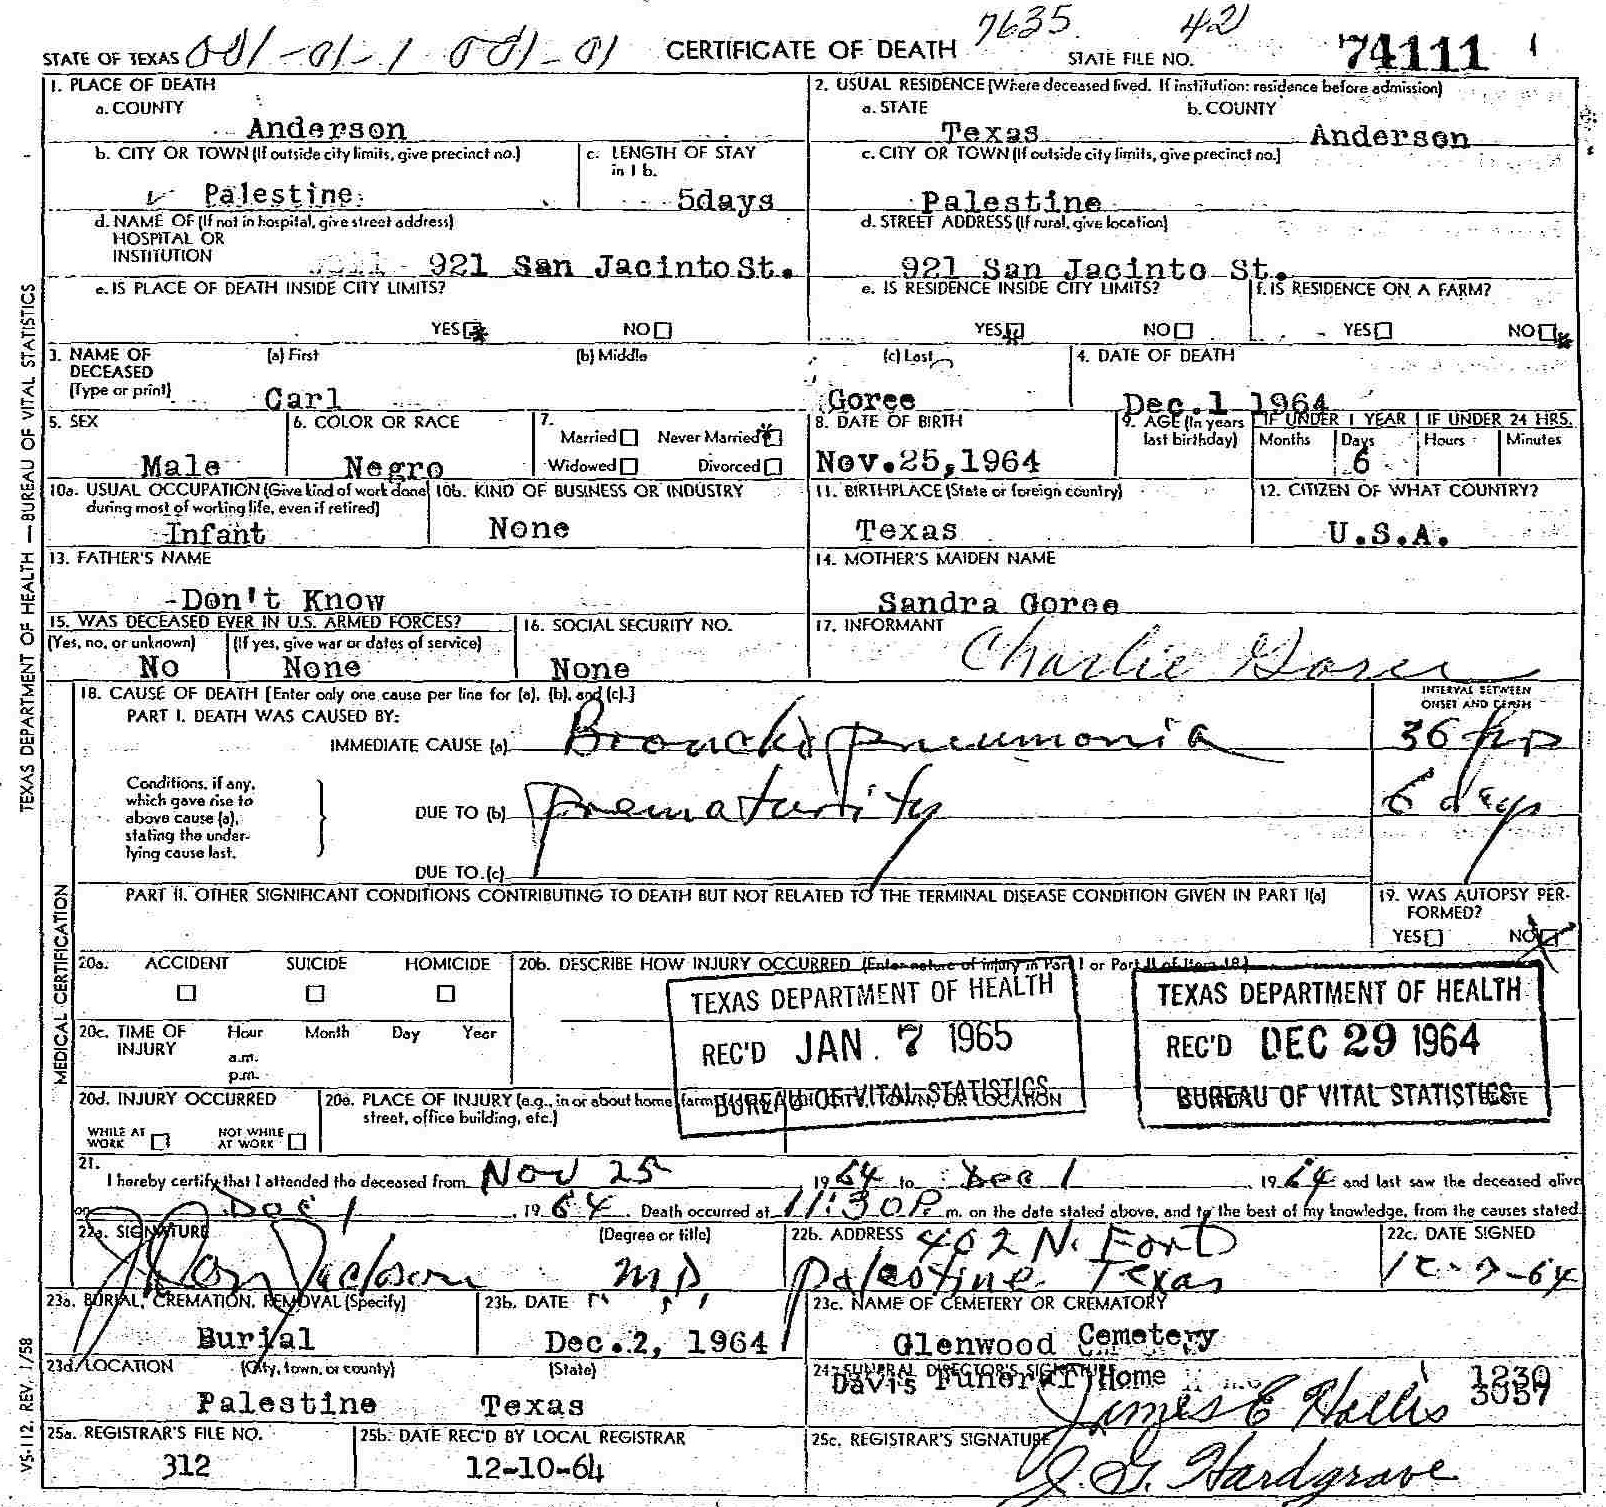 7635 42
STATE OF TEXAS 001-01-1 001-01 CERTIFICATE OF DEATH STATE FILE NO. 74111
1. PLACE OF DEATH
a. COUNTY
Anderson
2. USUAL RESIDENCE (Where deceased lived. If institution: residence before admission)
a. STATE b. COUNTY
Texas Anderson
b. CITY OR TOWN (If outside city limits, give precinct no.)
Palestine
c. LENGTH OF STAY
in 1 b.
5days
c. CITY OR TOWN (If outside city limits, give precinct no.)
Palestine
d. NAME OF (If not in hospital, give street address)
HOSPITAL OR
INSTITUTION
921 San Jacinto St.
d. STREET ADDRESS (If rural, give location)
921 San Jacinto St.
e. IS PLACE OF DEATH INSIDE CITY LIMITS?
YES NO
e. IS RESIDENCE INSIDE CITY LIMITS?
YES NO
f. IS RESIDENCE ON A FARM?
YES NO
3. NAME OF
DECEASED
(Type or print)
(a) First (b) Middle (c) Last
Carl Goree
4. DATE OF DEATH
Dec.1 1964
5. SEX
Male
6. COLOR OR RACE
Negro
7.
Married Never Married
Widowed Divorced
8. DATE OF BIRTH
Nov.25,1964
9. AGE (In years
last birthday)
IF UNDER 1 YEAR IF UNDER 24 HRS.
Months Days Hours Minutes
6
10a. USUAL OCCUPATION (Give kind of work done
during most of working life, even if retired)
Infant
10b. KIND OF BUSINESS OR INDUSTRY
None
11. BIRTHPLACE (State or foreign country)
Texas
12. CITIZEN OF WHAT COUNTRY?
U.S.A.
13. FATHER'S NAME
Don't Know
14. MOTHER'S MAIDEN NAME
Sandra Goree
15. WAS DECEASED EVER IN U.S. ARMED FORCES?
(Yes, no, or unknown) (If yes, give war or dates of service)
No None
16. SOCIAL SECURITY NO.
None
17. INFORMANT
Charlie Goree
18. CAUSE OF DEATH [Enter only one cause per line for (a), (b), and (c).]
PART I. DEATH WAS CAUSED BY:
INTERVAL BETWEEN
ONSET AND DEATH
IMMEDIATE CAUSE (a) Broncho pneumonia 36 hrs
Conditions, if any,
which gave rise to
above cause (a),
stating the under-
lying cause last.
DUE TO (b) prematurity 6 days
DUE TO (c)
PART II. OTHER SIGNIFICANT CONDITIONS CONTRIBUTING TO DEATH BUT NOT RELATED TO THE TERMINAL DISEASE CONDITION GIVEN IN PART I(a)
19. WAS AUTOPSY PER-
FORMED?
YES NO
20a. ACCIDENT SUICIDE HOMICIDE
20b. DESCRIBE HOW INJURY OCCURRED (Enter nature of injury in Part I or Part II of Item 18.)
20c. TIME OF
INJURY
Hour Month Day Year
a.m.
p.m.
TEXAS DEPARTMENT OF HEALTH
REC'D JAN. 7 1965
BUREAU OF VITAL STATISTICS
TEXAS DEPARTMENT OF HEALTH
REC'D DEC 29 1964
BUREAU OF VITAL STATISTICS
20d. INJURY OCCURRED
WHILE AT
WORK
NOT WHILE
AT WORK
20e. PLACE OF INJURY (e.g., in or about home, farm,
street, office building, etc.)
TOWN, OR LOCATION
21.
I hereby certify that I attended the deceased from Nov 25 1964 to Dec 1 1964 and last saw the deceased alive
on Dec 1, 1964. Death occurred at 11:30 P. m. on the date stated above, and to the best of my knowledge, from the causes stated.
22a. SIGNATURE (Degree or title)
Jackson M.D.
22b. ADDRESS 402 N. Fort
Palestine Texas
22c. DATE SIGNED
12-9-64
23a. BURIAL, CREMATION, REMOVAL (Specify)
Burial
23b. DATE
Dec.2, 1964
23c. NAME OF CEMETERY OR CREMATORY
Glenwood Cemetery
23d. LOCATION (City, town, or county) (State)
Palestine Texas
24. FUNERAL DIRECTOR'S SIGNATURE
Davis Funeral Home 1230
James E Hollis 3057
25a. REGISTRAR'S FILE NO.
312
25b. DATE REC'D BY LOCAL REGISTRAR
12-10-64
25c. REGISTRAR'S SIGNATURE
J. G. Hardgrave
TEXAS DEPARTMENT OF HEALTH — BUREAU OF VITAL STATISTICS
MEDICAL CERTIFICATION
VS-112, REV. 1/58